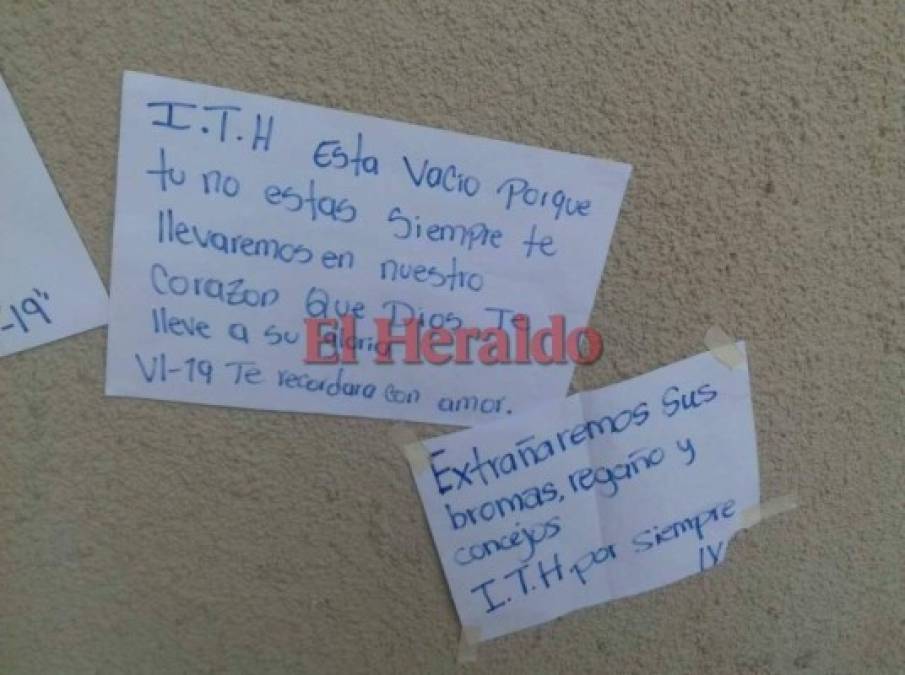 -19"
I.T.H Esta Vacio Porque
tu no estas Siempre te
llevaremos en nuestro
Corazon Que Dios Te
lleve a su gloria
VI-19 Te recordara con amor.
El Heraldo
Extrañaremos Sus
bromas, regaño y
concejos
I.T.H por siempre
IV